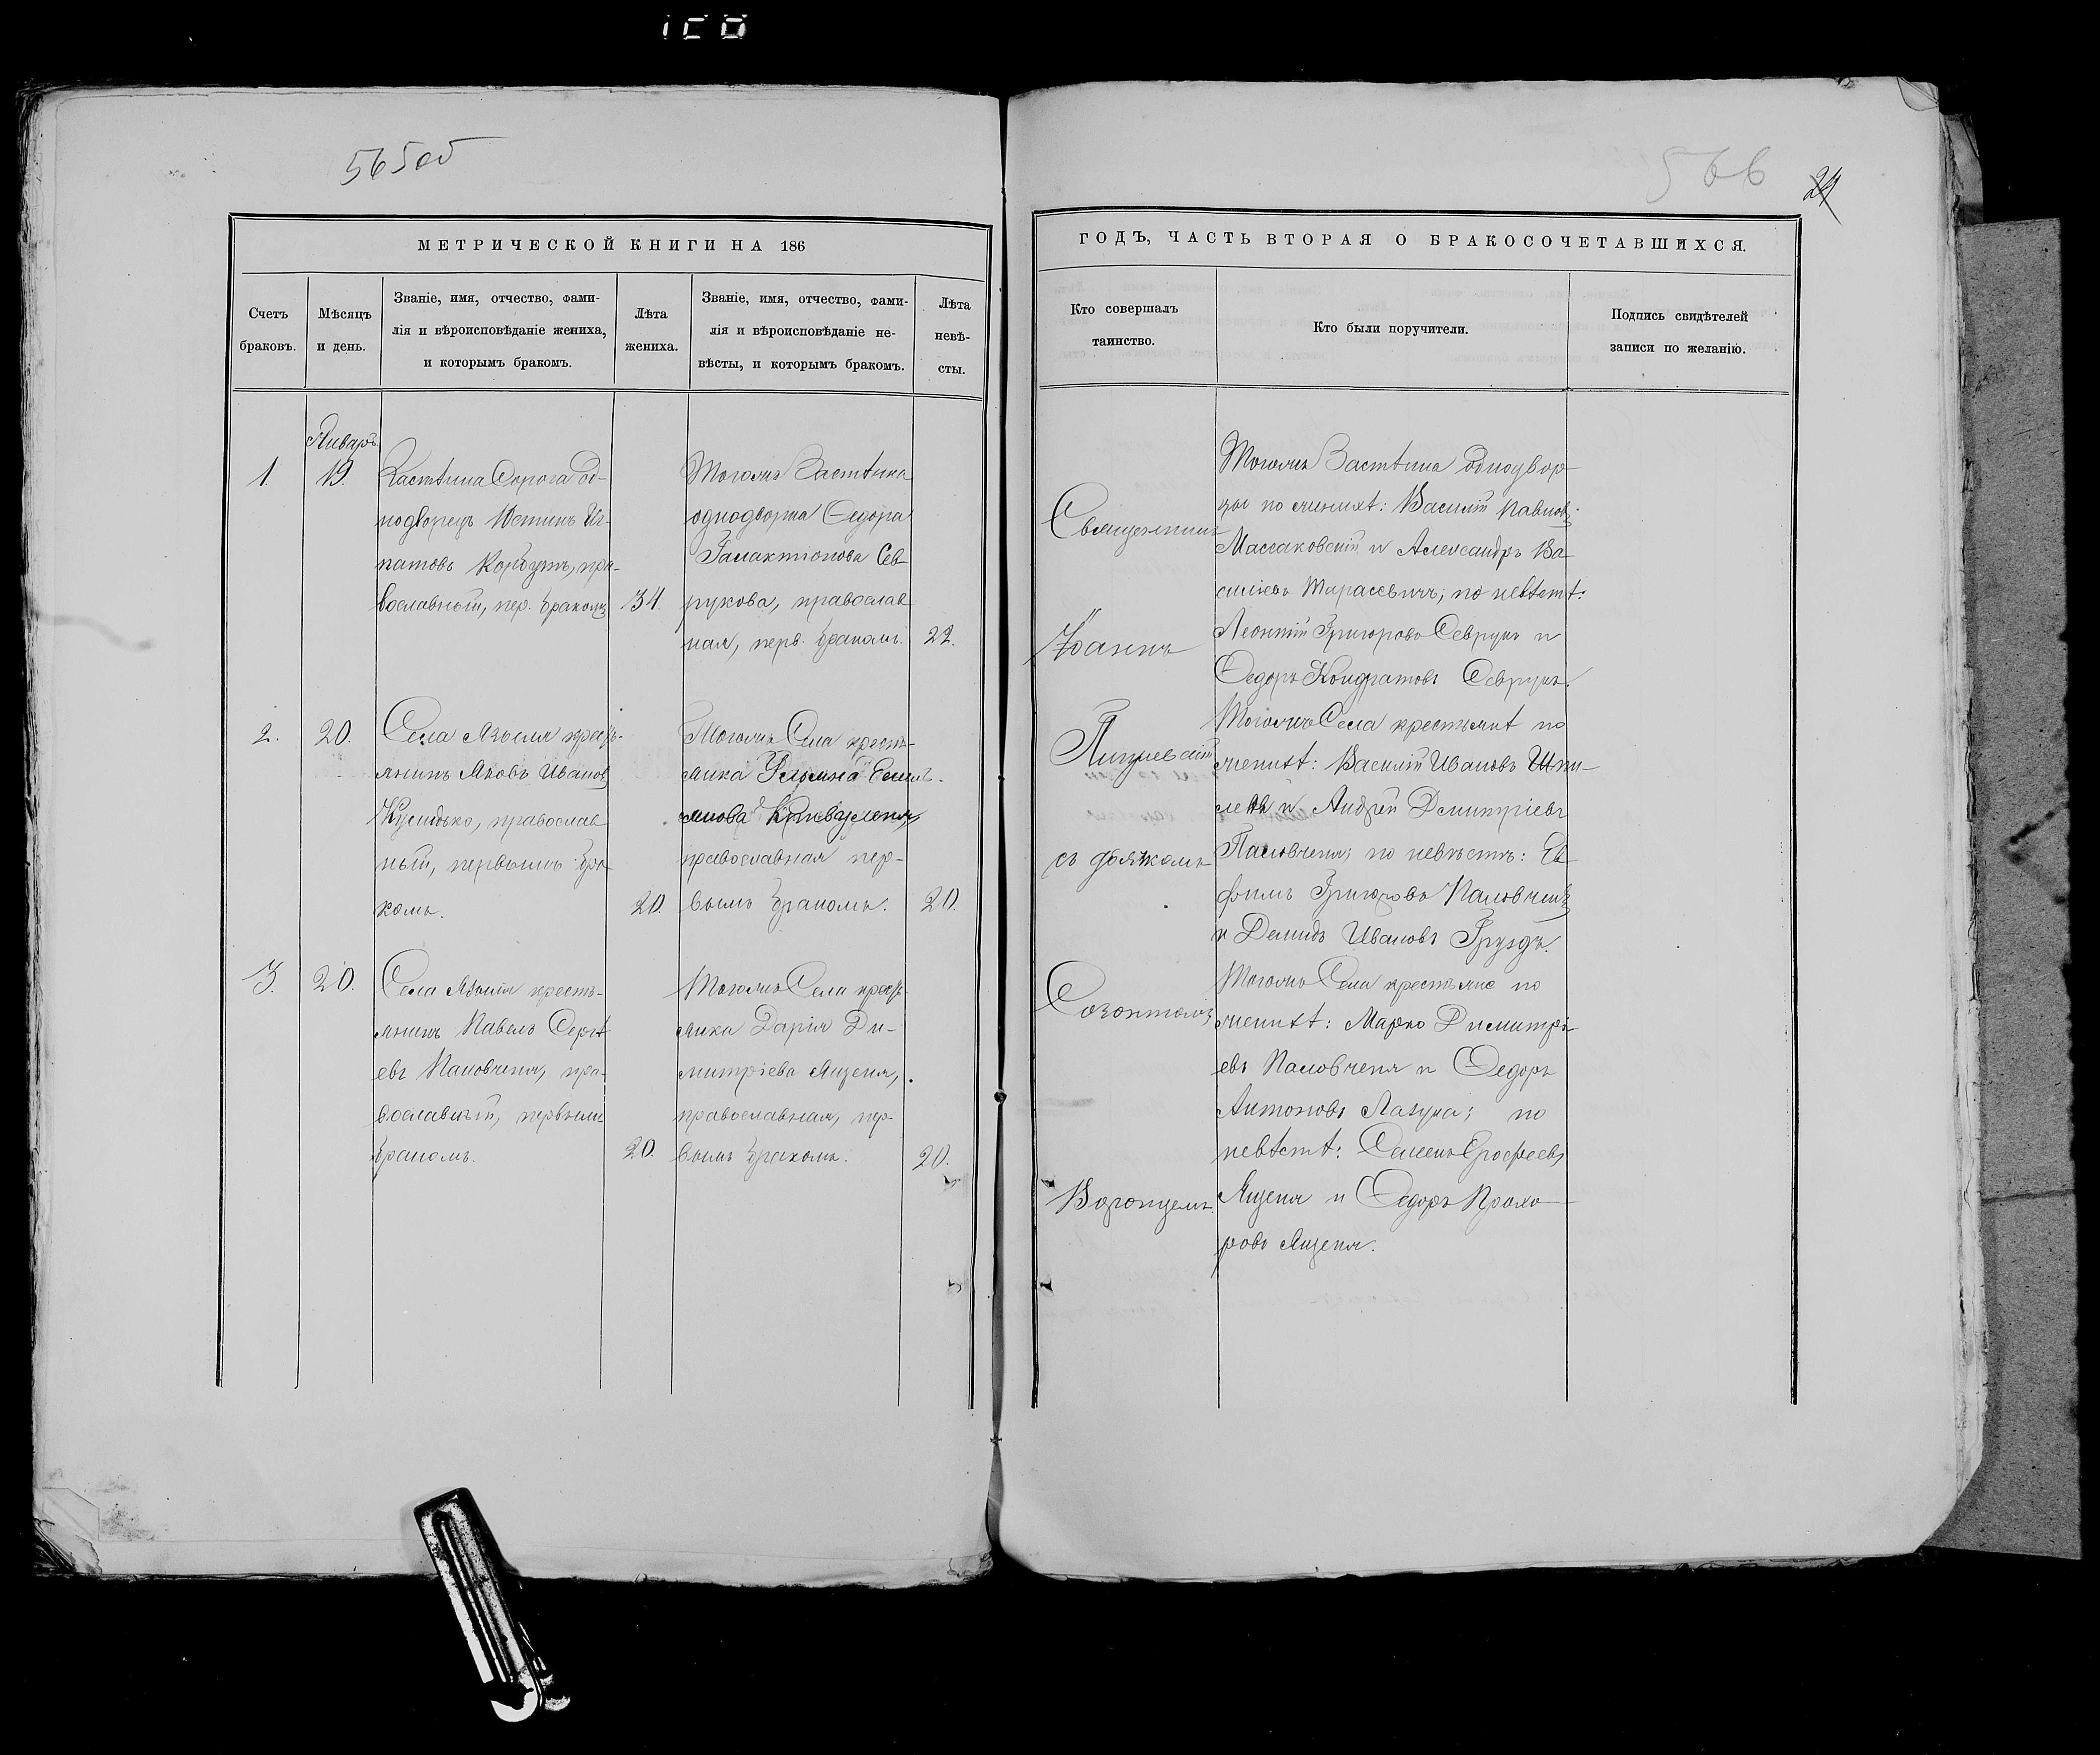 565 об
МЕТРИЧЕСКОЙ КНИГИ НА 186
Счетъ браковъ.
Мѣсяцъ и день.
Званіе, имя, отчество, фами-
лія и вѣроисповѣданіе жениха,
и которымъ бракомъ.
Лѣта
жениха.
Званіе, имя, отчество, фами-
лія и вѣроисповѣданіе не-
вѣсты, и которымъ бракомъ.
Лѣта
невѣ-
сты.
Январь
1.
19.
Застѣнка Сорога од-
нодворецъ Іустинъ Иг-
натовъ Корбутъ, пра-
вославный, пер. бракомъ
34.
Тогожъ Застѣнка
однодворка Ѳедора
Галактіонова Сев-
рукова, православ
ная, перв. бракомъ.
22.
2.
20.
Села Языля кресть-
янинъ Яковъ Ивановъ
православ
ный, первымъ бра-
комъ.
20.
Тогожъ Села кресть-
янка Емель-
янова Кривуленя,
православная пер-
вымъ бракомъ.
20.
3.
20.
Села Языля кресть-
янинъ Павелъ Сергѣ-
евъ Паловченя, пра-
вославный, первымъ
бракомъ.
20.
Тогожъ Села кресть-
янка Дарія Ди-
митріева Яцкеня,
православная, пер-
вымъ бракомъ.
20.
566
24
ГОДЪ, ЧАСТЬ ВТОРАЯ О БРАКОСОЧЕТАВШИХСЯ.
Кто совершалъ
таинство.
Кто были поручители.
Подпись свидѣтелей
записи по желанію.
Священникъ
Іоаннъ
съ дьячкомъ
Созонтомъ
Воронцемъ.
Тогожъ Застѣнка однодвор-
цы по женихѣ: Василій Павловъ
Массаковскій и Александръ Ва-
силіевъ Тарасевичъ; по невѣстѣ:
Леонтій Григоровъ Севрукъ и
Ѳедоръ Кондратовъ Севрукъ.
Тогожъ Села крестьянѣ по
женихѣ: Василій Ивановъ
и Андрей Дмитріевъ
Паловченя; по невѣстѣ: Ев
фимъ Григоровъ Паловченя
и Демидъ Ивановъ Груздъ.
Тогожъ Села крестьяне по
женихѣ: Марко Димитрі-
евъ Паловченя и Ѳедоръ
Антоновъ Лазука; по
невѣстѣ: Семенъ Ерофеевъ
Яцкеня и Ѳедоръ Прохо-
ровъ Яцкеня.